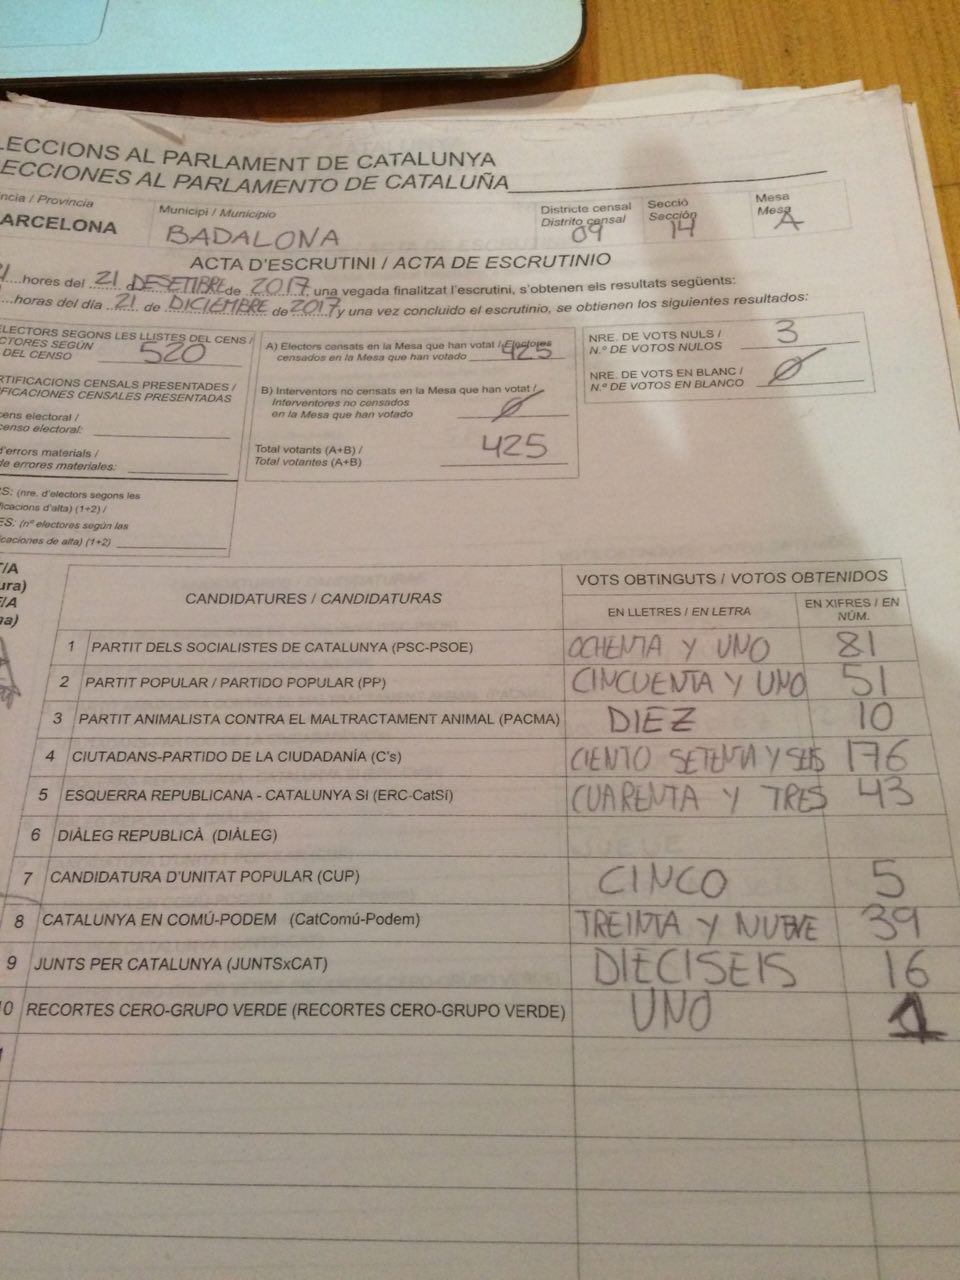 LECCIONS AL PARLAMENT DE CATALUNYA
ECCIONES AL PARLAMENTO DE CATALUÑA
ncia / Provincia
ARCELONA
Municipi / Municipio
BADALONA
Districte censal
Distrito censal
09
Secció
Sección
14
Mesa
Mesa
A
ACTA D'ESCRUTINI / ACTA DE ESCRUTINIO
hores del 21 d DESETIBRE de 2017, una vegada finalitzat l'escrutini, s'obtenen els resultats següents:
horas del día 21 de DICIEMBRE de 2017 y una vez concluido el escrutinio, se obtienen los siguientes resultados:
LECTORS SEGONS LES LLISTES DEL CENS /
CTORES SEGÚN
DEL CENSO 520
RTIFICACIONS CENSALS PRESENTADES /
IFICACIONES CENSALES PRESENTADAS
cens electoral /
censo electoral:
d'errors materials /
de errores materiales:
S: (nre. d'electors segons les
ificacions d'alta) (1+2) /
ES: (nº electores según las
icaciones de alta) (1+2)
A) Electors censats en la Mesa que han votat / Electores
censados en la Mesa que han votado 425
B) Interventors no censats en la Mesa que han votat /
Interventores no censados
en la Mesa que han votado Ø
Total votants (A+B) /
Total votantes (A+B) 425
NRE. DE VOTS NULS /
N.º DE VOTOS NULOS 3
NRE. DE VOTS EN BLANC /
N.º DE VOTOS EN BLANCO Ø
T/A
ura)
/A
na)
CANDIDATURES / CANDIDATURAS
VOTS OBTINGUTS / VOTOS OBTENIDOS
EN LLETRES / EN LETRA
EN XIFRES / EN
NÚM.
1 PARTIT DELS SOCIALISTES DE CATALUNYA (PSC-PSOE) OCHENTA Y UNO 81
2 PARTIT POPULAR / PARTIDO POPULAR (PP) CINCUENTA Y UNO 51
3 PARTIT ANIMALISTA CONTRA EL MALTRACTAMENT ANIMAL (PACMA) DIEZ 10
4 CIUTADANS-PARTIDO DE LA CIUDADANÍA (C's) CIENTO SETENTA Y SEIS 176
5 ESQUERRA REPUBLICANA - CATALUNYA SI (ERC-CatSí) CUARENTA Y TRES 43
6 DIÀLEG REPUBLICÀ (DIÀLEG)
7 CANDIDATURA D'UNITAT POPULAR (CUP) CINCO 5
8 CATALUNYA EN COMÚ-PODEM (CatComú-Podem) TREINTA Y NUEVE 39
9 JUNTS PER CATALUNYA (JUNTSxCAT) DIECISEIS 16
10 RECORTES CERO-GRUPO VERDE (RECORTES CERO-GRUPO VERDE) UNO 1